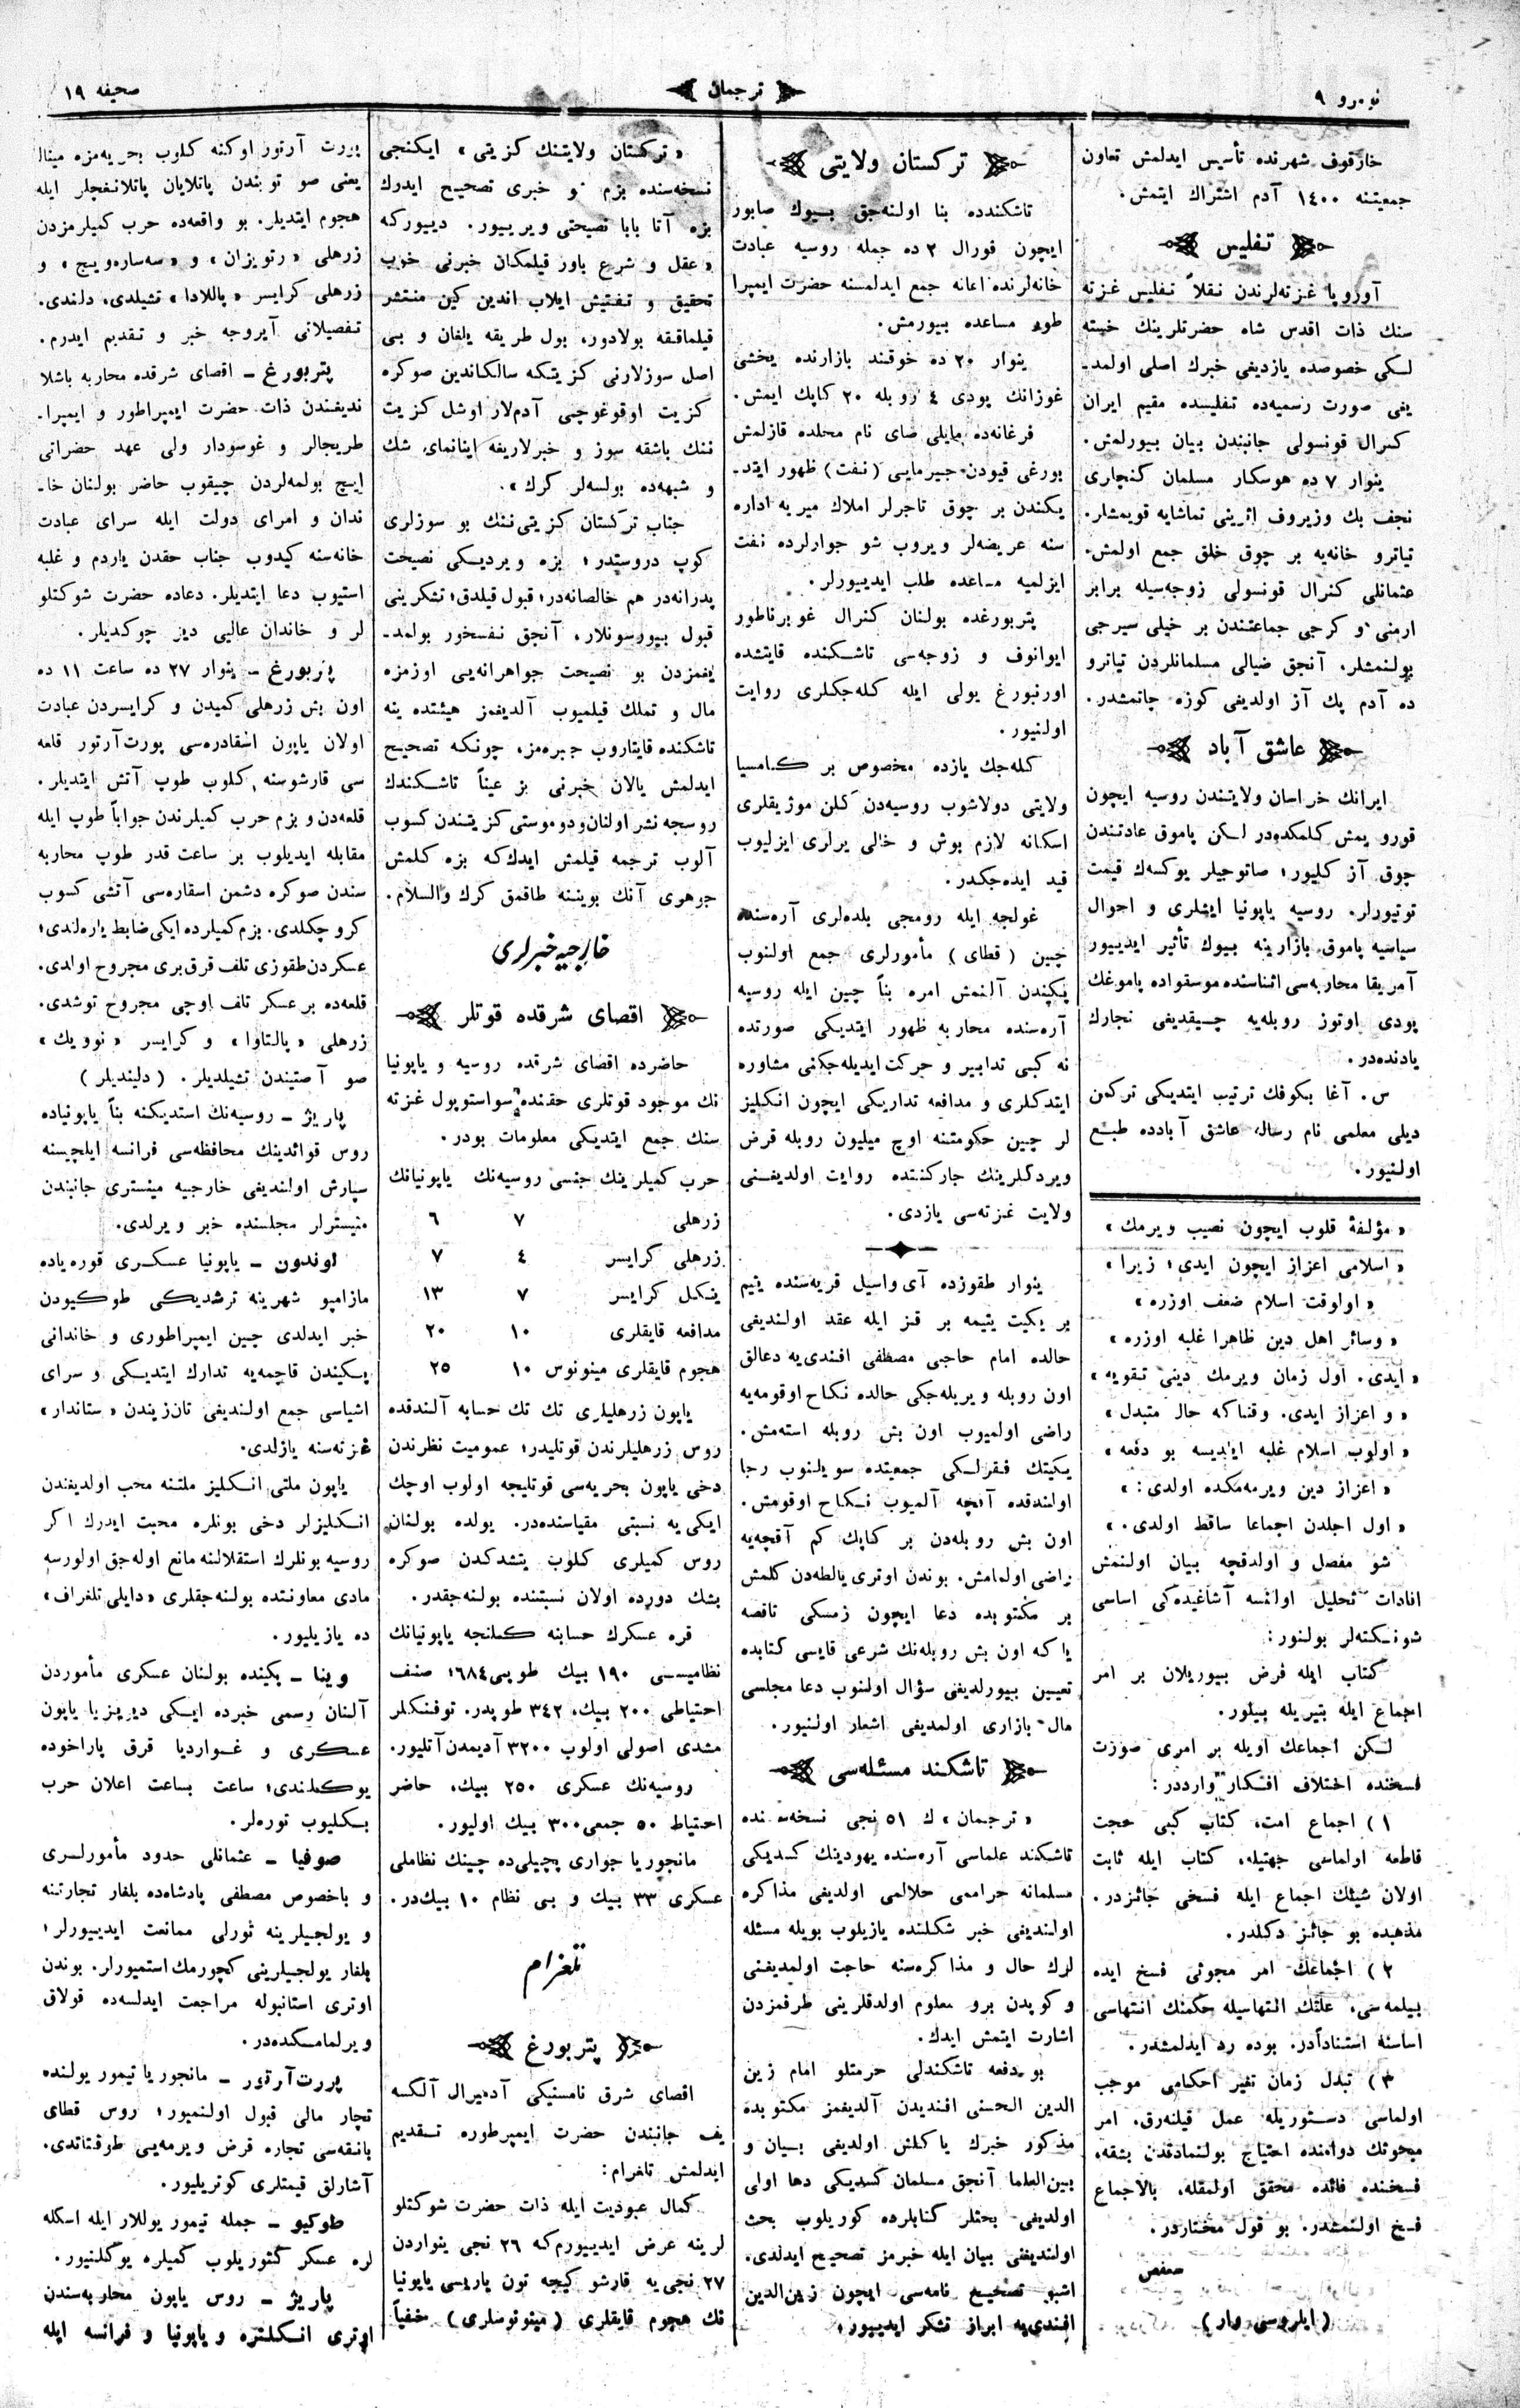 نومرو ٩
ترجمان
صحيفه ١٩
خارقوف شهرنده تأسيس ايدلمش تعاون
جمعيتنه ١٤٠٠ آدم اشتراك ايتمش.
تفليس
آوروپا غزته‌لرندن نقلاً تفليس غزته
سنك ذات اقدس شاه حضرتلرينك خسته
لكى خصوصده يازديغى خبرك اصلى اولمد‌ـ
يغى صورت رسميه‌ده تفليسده مقيم ايران
كنرال قونسولى جانبندن بيان بيورلمش.
ينوار ٧ ده هوسكار مسلمان گنچلرى
نجف بك وزيروف اثرينى تماشايه قويمشلر.
تياترو خانه‌يه بر چوق خلق جمع اولمش.
عثمانلى كنرال قونسولى زوجه‌سيله برابر
ارمنى و كرجى جماعتندن بر خيلى سيرجى
بولنمشلر. آنجق ضيالى مسلمانلردن تياترو
ده آدم پك آز اولديغى كوزه چاتمشدر.
عاشق آباد
ايرانك خراسان ولايتندن روسيه ايچون
قورو يمش كلمكده‌در لكن پاموق عادتندن
چوق آز كليور؛ صاتوجيلر يوكسه‌ك قيمت
توتيورلر. روسيه ياپونيا ايشلرى و احوال
سياسيه پاموق بازارينه بيوك تأثير ايدييور
آمريقا محاربه‌سى اثناسنده موسقواده پاموغك
پودى اوتوز روبله‌يه چيقديغى تجارك
يادنده‌در.
س. آغا بكوفك ترتيب ايتديكى تركمن
ديلى معلمى نام رساله عاشق آبادده طبع
اولنيور.
« مؤلفۀ قلوب ايچون نصيب ويرمك »
« اسلامى اعزاز ايچون ايدى؛ زيرا »
« اولوقت اسلام ضعف اوزره »
« وسائر اهل دين ظاهرا غلبه اوزره »
« ايدى. اول زمان ويرمك دينى تقويه »
« و اعزاز ايدى. وقتاكه حال متبدل »
« اولوب اسلام غلبه ايلديسه بو دفعه »
« اعزاز دين ويرمه‌مكده اولدى: »
« اول اجلدن اجماعا ساقط اولدى. »
شو مفصل و اولدقچه بيان اولنمش
افادات تحليل اولنسه آشاغيده‌كى اساسى
شو نكته‌لر بولنور:
كتاب ايله فرض بيوريلان بر امر
اجماع ايله بتيريله بيلور.
لكن اجماعك اويله بر امرى صورت
فسخنده اختلاف افكار واردر:
١) اجماع امت، كتاب كبى حجت
قاطعه اولماسى جهتيله، كتاب ايله ثابت
اولان شيئك اجماع ايله فسخى جائزدر.
مذهبده بو جائز دكلدر.
٢) اجماعك امر مجوثى فسخ ايده
بيلمه‌سى، علتك انتهاسيله حكمنك انتهاسى
اساسنه استناداًدر. بوده رد ايدلمشدر.
٣) تبدل زمان تغير احكامى موجب
اولماسى دستوريله عمل قيلنه‌رق. امر
مبحوثك دوامنده احتياج بولنمادقدن بشقه،
فسخنده فائده محقق اولمقله. بالاجماع
فسخ اولنمشدر. بو قول مختاردر.
(ايلروسى وار)
تركستان ولايتى
تاشكندده بنا اولنه‌جق بيوك صابور
ايچون فورال ٢ ده جمله روسيه عبادت
خانه‌لرنده اعانه جمع ايدلمسنه حضرت ايمپرا
طور مساعده بيورمش.
ينوار ٢٠ ده خوقند بازارنده يخشى
غوزانك پودى ٤ روبله ٢٠ كاپك ايمش.
فرغانه‌ده مايلى صاى نام محلده قازلمش
بورغى قيودن جيرمايى (نفت) ظهور ايتد‌ـ
يكندن بر چوق تاجرلر املاك ميريه اداره
سنه عريضه‌لر ويروب شو جوارلرده نفت
ايزلميه مساعده طلب ايدييورلر.
پتربورغده بولنان كنرال غوبرناطور
ايوانوف و زوجه‌سى تاشكنده قايتشده
اورنبورغ يولى ايله كله‌جكلرى روايت
اولنيور.
كله‌جك يازده مخصوص بر كامسيا
ولايتى دولاشوب روسيه‌دن كلن موژيقلرى
اسكانه لازم بوش و خالى يرلرى ايزليوب
قيد ايده‌جكدر.
غولجه ايله رومجى بلده‌لرى آره‌سنده
چين (قطاى) مأمورلرى جمع اولنوب
پكيندن آلنمش امره بناً چين ايله روسيه
آره‌سنده محاربه ظهور ايتديكى صورتده
نه كبى تدابير و حركت ايديله‌جكنى مشاوره
ايتدكلرى و مدافعه تداريكى ايچون انكليز
لر چين حكومتنه اوچ ميليون روبله قرض
ويردكلرينك جاركنتده روايت اولديغنى
ولايت غزته‌سى يازدى.
ينوار طقوزده آى واسيل قريه‌سنده يتيم
بر يكيت يتيمه بر قز ايله عقد اولنديغى
حالده امام حاجى مصطفى افندى‌يه دعالق
اون روبله ويريله‌جكى حالده نكاح اوقومه‌يه
راضى اولميوب اون بش روبله استه‌مش.
يكيتك فقرلكى جمعيتده سويلنوب رجا
اولندقده آقچه آلميوب نكاح اوقومش.
اون بش روبله‌دن بر كاپك كم آقچه‌يه
راضى اولمامش. بوندن اوترى يالطه‌دن كلمش
بر مكتوبده دعا ايچون زمسكى تاقصه
يا كه اون بش روبله‌نك شرعى قايسى كتابده
تعيين بيورلديغى سؤال اولنوب دعا مجلسى
مال بازارى اولمديغى اشعار اولنيور.
تاشكند مسئله‌سى
« ترجمان » ك ٥١ نجى نسخه‌سنده
تاشكند علماسى آره‌سنده يهودينك كسديكى
مسلمانه حرامى حلالمى اولديغى مذاكره
اولنديغى خبر شكلنده يازيلوب بويله مسئله
لرك حال و مذاكره‌سنه حاجت اولمديغنى
و كوپدن برو معلوم اولدقلرينى طرفمزدن
اشارت ايتمش ايدك.
بو دفعه تاشكندلى حرمتلو امام زين
الدين الحسنى افنديدن آلديغمز مكتوبده
مذكور خبرك ياكلش اولديغى بيان و
بين‌العلما آنجق مسلمان كسديكى دها اولى
اولديغى بحثلر كتابلرده كوريلوب بحث
اولنديغنى بيان ايله خبرمز تصحيح ايدلدى.
اشبو تصحيح نامه‌سى ايچون زين‌الدين
افندى‌يه ابراز تشكر ايدييور؛
« تركستان ولايتنك كزيتى » ايكنجى
نسخه‌سنده بزم بو خبرى تصحيح ايدرك
بزه آتا بابا نصيحتى ويرييور. دييوركه
« عقل و شرع باور قيلمكان خبرنى خوب
تحقيق و تفتيش ايلاب اندين كين منتشر
قيلماقغه بولادور، بول طريقه يلغان و بى
اصل سوزلارنى كزيتكه سالكاندين صوكره
كزيت اوقوغوچى آدم‌لار اوشل كزيت
ننك باشقه سوز و خبرلاريغه اينانماى شك
و شبهه‌ده بولسه‌لر كرك ».
جناب تركستان كزيتى‌ننك بو سوزلرى
كوپ دروستدر؛ بزه ويرديكى نصيحت
پدرانه‌در هم خالصانه‌در؛ قبول قيلدق؛ تشكرينى
قبول بيورسونلار. آنجق نفسخور بولمد‌ـ
يغمزدن بو نصيحت جواهرانه‌يى اوزمزه
مال و تملك قيلميوب آلديغمز هيئتده ينه
تاشكنده قايتاروب جيبره‌مز. چونكه تصحيح
ايدلمش يالان خبرنى بز عيناً تاشكندك
روسجه نشر اولنان ودوموستى كزيتندن كسوب
آلوب ترجمه قيلمش ايدك‌كه بزه كلمش
جوهرى آنك بويننه طاقمق كرك والسلام.
خارجيه خبرلرى
اقصاى شرقده قوتلر
حاضرده اقصاى شرقده روسيه و ياپونيا
نك موجود قوتلرى حقنده سواستوپول غزته
سنك جمع ايتديكى معلومات بودر.
حرب كميلرينك جنسى روسيه‌نك ياپونيانك
زرهلى ٧ ٦
زرهلى كرايسر ٤ ٧
ينكل كرايسر ٧ ١٣
مدافعه قايقلرى ١٠ ٢٠
هجوم قايقلرى مينونوس ١٠ ٢٥
ياپون زرهليلرى تك تك حسابه آلندقده
روس زرهليلرندن قوتليدر؛ عموميت نظرندن
دخى ياپون بحريه‌سى قوتليجه اولوب اوچك
ايكى‌يه نسبتى مقياسنده‌در. يولده بولنان
روس كميلرى كلوب يتشدكدن صوكره
بشك دورده اولان نسبتنده بولنه‌جقدر.
قره عسكرك حسابنه كلنجه ياپونيانك
نظاميسى ١٩٠ بيك طوپى ٦٨٤؛ صنف
احتياطى ٢٠٠ بيك، ٣٤٢ طوپدر. توفنكلر
مشدى اصولى اولوب ٣٢٠٠ آديمدن آتليور.
روسيه‌نك عسكرى ٢٥٠ بيك، حاضر
احتياط ٥٠ جمعى ٣٠٠ بيك اوليور.
مانجوريا جوارى پچيلى‌ده چينك نظاملى
عسكرى ٣٣ بيك و بى نظام ١٠ بيك‌در.
تلغرام
پتربورغ
اقصاى شرق نامسنيكى آدميرال آلكسه
يف جانبندن حضرت ايمپرطوره تقديم
ايدلمش تلغرام:
كمال عبوديت ايله ذات حضرت شوكتلو
لرينه عرض ايدييورم كه ٢٦ نجى ينواردن
٢٧ نجى‌يه قارشو كيجه تون ياريسى ياپونيا
نك هجوم قايقلرى (مينونوسلرى) مخفياً
پورت آرتور اوكنه كلوب بحريه‌مزه مينالر
يعنى صو توبندن پاتلايان پاتلانغچلر ايله
هجوم ايتديلر. بو واقعه‌ده حرب كميلرمزدن
زرهلى « رتويزان » و « سه‌ساره‌ويچ » و
زرهلى كرايسر « پاللادا » تشيلدى، دلندى.
تفصيلاتى آيروجه خبر و تقديم ايدرم.
پتربورغ ـ اقصاى شرقده محاربه باشلا
نديغندن ذات حضرت ايمپراطور و ايمپرا‌ـ
طريچالر و غوسودار ولى عهد حضراتى
ايچ بولمه‌لردن چيقوب حاضر بولنان خا‌ـ
ندان و امراى دولت ايله سراى عبادت
خانه‌سنه كيدوب جناب حقدن ياردم و غلبه
استيوب دعا ايتديلر. دعاده حضرت شوكتلو
لر و خاندان عالى ديز چوكديلر.
پتربورغ ـ ينوار ٢٧ ده ساعت ١١ ده
اون بش زرهلى كميدن و كرايسردن عبادت
اولان ياپون اسقادره‌سى پورت‌آرتور قلعه
سى قارشوسنه كلوب طوپ آتش ايتديلر.
قلعه‌دن و بزم حرب كميلرندن جواباً طوپ ايله
مقابله ايديلوب بر ساعت قدر طوپ محاربه
سندن صوكره دشمن اسقاره‌سى آتشى كسوب
كرو چكلدى. بزم كميلرده ايكى ضابط ياره‌لندى؛
عسكردن طقوزى تلف قرق برى مجروح اولدى.
قلعه‌ده بر عسكر تلف اوچى مجروح توشدى.
زرهلى « پالتاوا » و كرايسر « نوويك »
صو آصتيندن تشيلديلر. (دلينديلر)
پاريژ ـ روسيه‌نك استديكنه بناً ياپونياده
روس قواندينك محافظه‌سى فرانسه ايلچيسنه
سپارش اولنديغى خارجيه مينسترى جانبندن
منيسترلر مجلسنده خبر ويرلدى.
لوندون ـ ياپونيا عسكرى قوره‌ياده
مازامپو شهرينه ترشديكى طوكيودن
خبر ايدلدى چين ايمپراطورى و خاندانى
پكيندن قاچمه‌يه تدارك ايتديكى و سراى
اشياسى جمع اولنديغى تان‌زيندن « ستاندار »
غزته‌سنه يازلدى.
ياپون ملتى انكليز ملتنه محب اولديغندن
انكليزلر دخى بونلره محبت ايدرك اكر
روسيه بونلرك استقلالنه مانع اوله‌جق اولورسه
مادى معاونتده بولنه‌جقلرى « دايلى تلغراف »
ده يازيليور.
وينا ـ پكينده بولنان عسكرى مأموردن
آلنان رسمى خبرده ايكى ديويزيا ياپون
عسكرى و غوارديا قرق پاراخوده
يوكلندى؛ ساعت بساعت اعلان حرب
بكليوب توره‌لر.
صوفيا ـ عثمانلى حدود مأمورلرى
و باخصوص مصطفى پادشاه‌ده بلغار تجارتنه
و يولجيلرينه تورلى ممانعت ايدييورلر؛
بلغار يولجيلرينى كچورمك استميورلر. بوندن
اوترى استانبوله مراجعت ايدلسه‌ده قولاق
ويرلمامكده‌در.
پورت‌آرتور ـ مانجوريا تيمور يولنده
تجار مالى قبول اولنميور؛ روس قطاى
بانقه‌سى تجاره قرض ويرمه‌يى طوقتاتدى.
آشارلق قيمتلرى كوتريليور.
طوكيو ـ جمله تيمور يوللار ايله اسكله
لره عسكر كتوريلوب كميلره يوكلنيور.
پاريژ ـ روس ياپون محاربه‌سندن
اوترى انكلتره و ياپونيا و فرانسه ايله